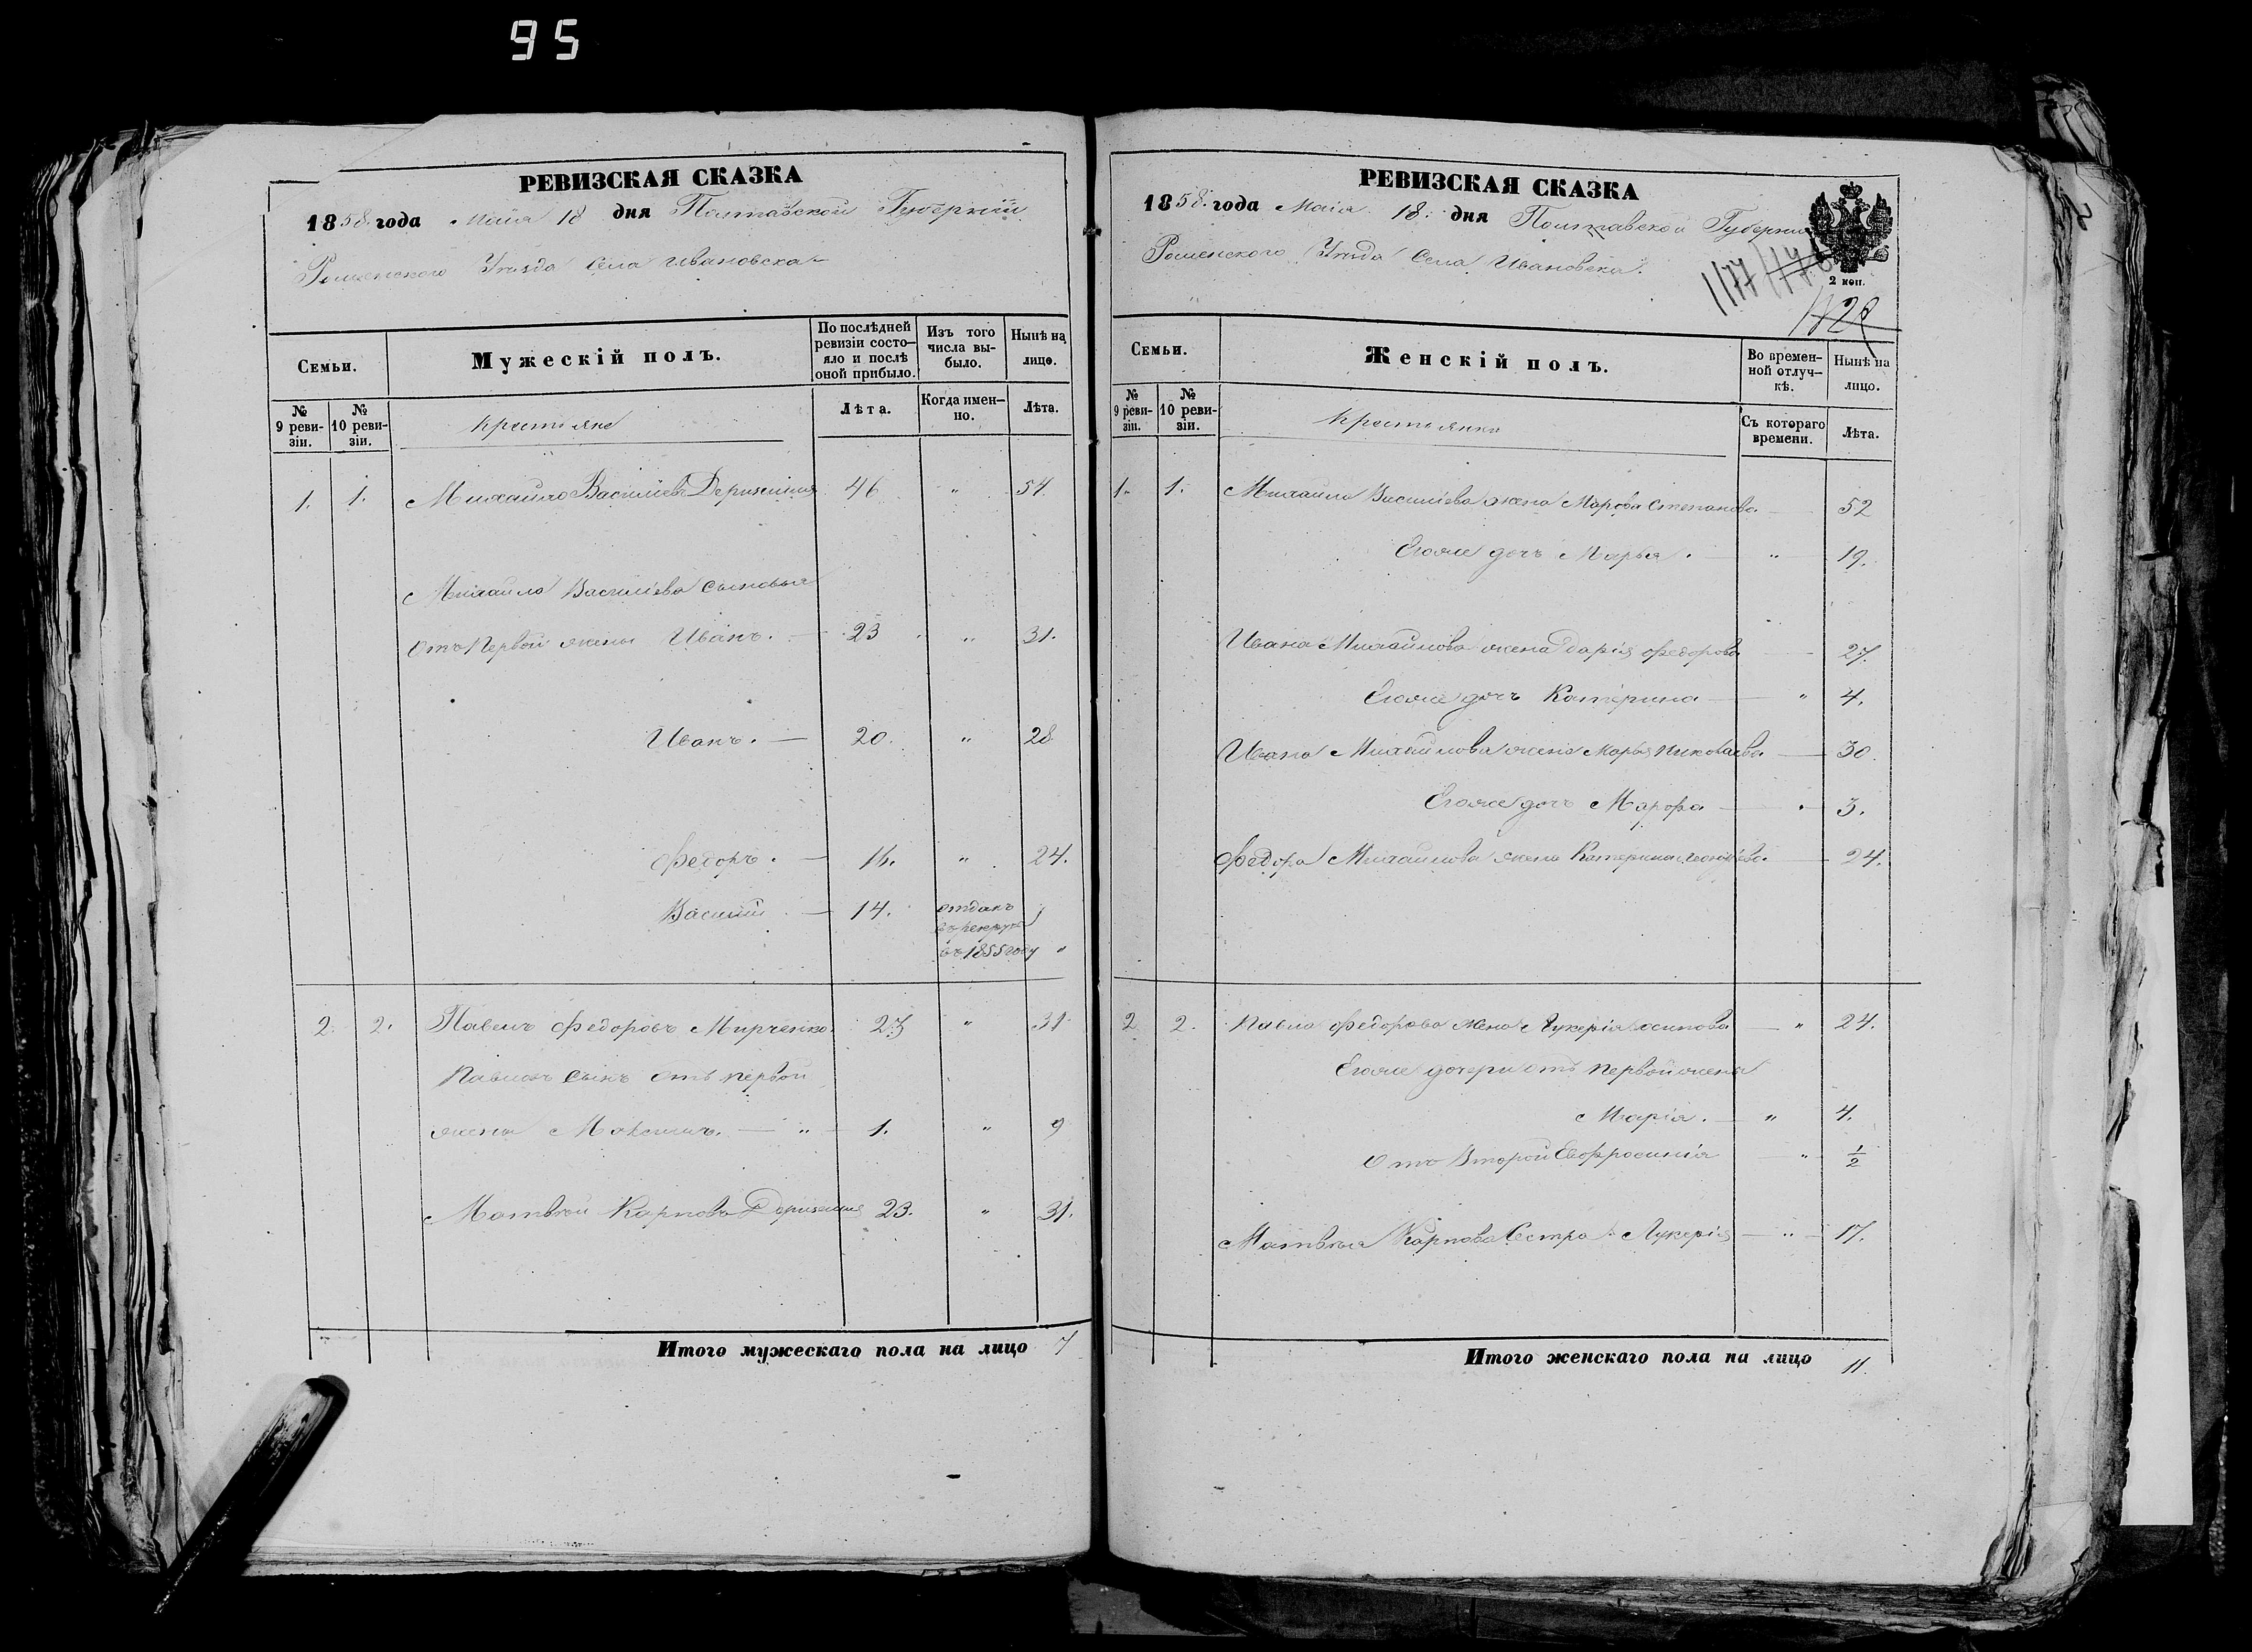 95
РЕВИЗСКАЯ СКАЗКА
1858 года Маія 18 дня Полтавской Губерніи
Роменского Уезда Села Ивановска
Семьи.
Мужескій полъ.
По послѣдней ревизіи состояло и послѣ оной прибыло.
Изъ того числа выбыло.
Нынѣ на лицо.
№ 9 ревизіи.
№ 10 ревизіи.
Крестьяне
Лѣта.
Когда именно.
Лѣта.
1. 1. Михайло Васильевъ 46 " 54.
Михайла Васильева сыновья
отъ Первой жены Иванъ. 23 " 31.
Иванъ. 20. " 28
Федоръ. 16. " 24.
Василий 14. отданъ
въ рекруты
въ 1855 году "
2. 2. Павелъ Федоровъ Мирченко 23 " 31
Павловъ сынъ отъ первой
жены Максимъ. " 1. " 9
Матвей Карповъ 23. " 31.
Итого мужескаго пола на лицо 7
РЕВИЗСКАЯ СКАЗКА
1858 года Маія 18 дня Полтавской Губерніи
Роменского Уезда Села Ивановска.
1177
2 коп.
Семьи.
Женскій полъ.
Во временной отлучкѣ.
Нынѣ на лицо.
№ 9 ревизіи.
№ 10 ревизіи.
Крестьянки
Съ котораго времени.
Лѣта.
1. 1. Михайла Васильева жена Марфа Степанова 52
Егоже дочь Марья. " 19.
Ивана Михайлова жена Дарія Федорова 27.
Егоже дочь Катерина " 4.
Ивана Михайлова жена Марья Николаева 30.
Егоже дочь Марфа 3.
Федора Михайлова жена Катерина 24.
2 2. Павла Федорова жена Лукерія Осипова " 24.
Егоже дочери отъ первой жены
Марія. " 4.
Отъ Второй Евфросинія " ½
Матвея Карпова Сестра Лукерія " 17.
Итого женскаго пола на лицо 11.